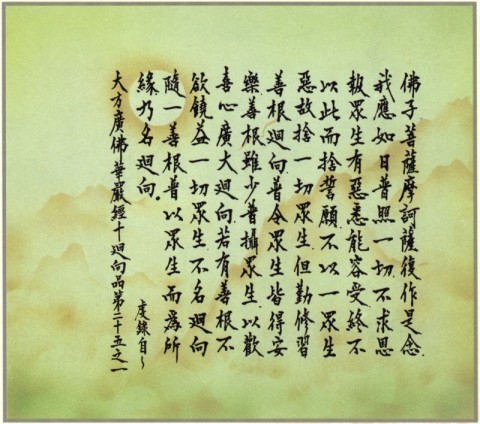 佛子菩薩摩訶薩復作是念
我應如日普照一切不求恩
報眾生有惡悉能容受終不
以此而捨誓願不以一眾生
惡故捨一切眾生但勤修習
善根迴向普令眾生皆得安
樂善根雖少普攝眾生以歡
喜心廣大迴向若有善根不
欲饒益一切眾生不名迴向
隨一善根普以眾生而為所
緣乃名迴向。
度錄自~
大方廣佛華嚴經十迴向品第二十五之一